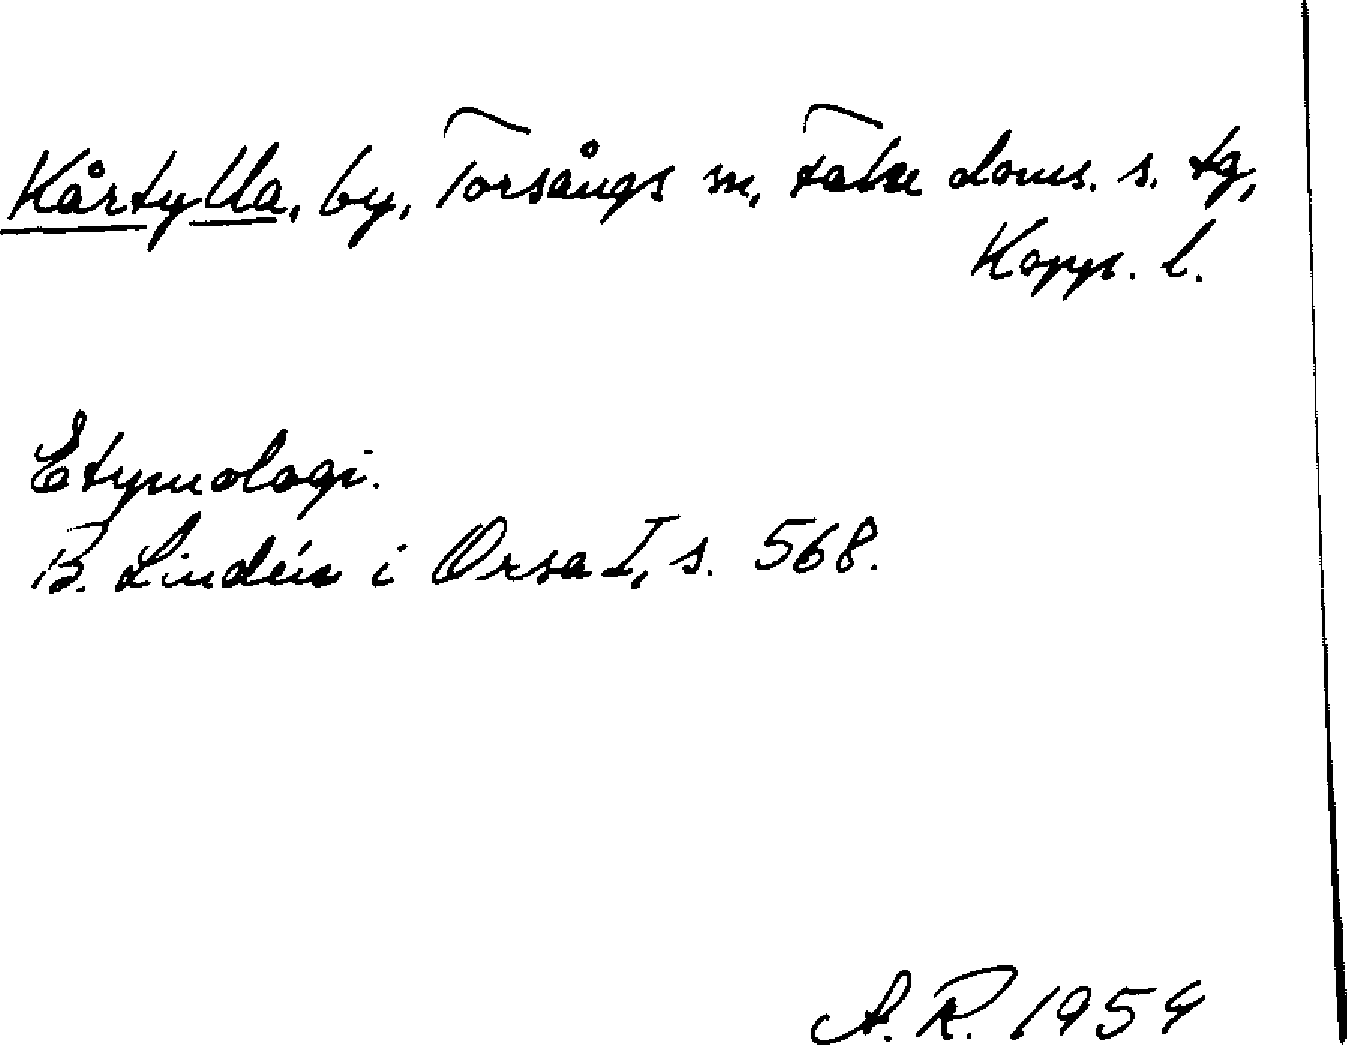 Kårtylla, by, Torsångs sn, Falu doms. s. tg,
Kopp. l.
Etymologi.
B. Lindén i Orsa I, s. 568.
A. R. 1954